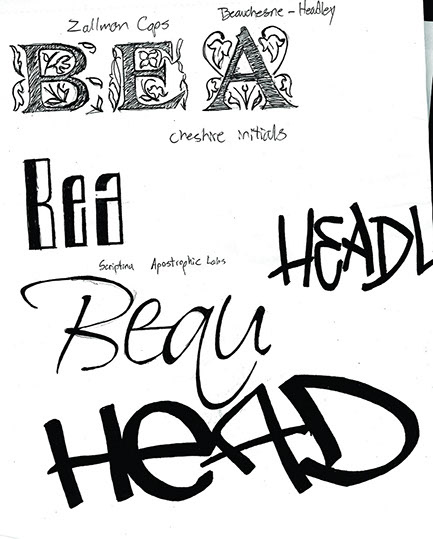 Zallman Caps
Beauchesne - Headley
BEA
Cheshire initials
Bea
HEADL
Scriptina Apostrophic Labs
Beau
HEAD